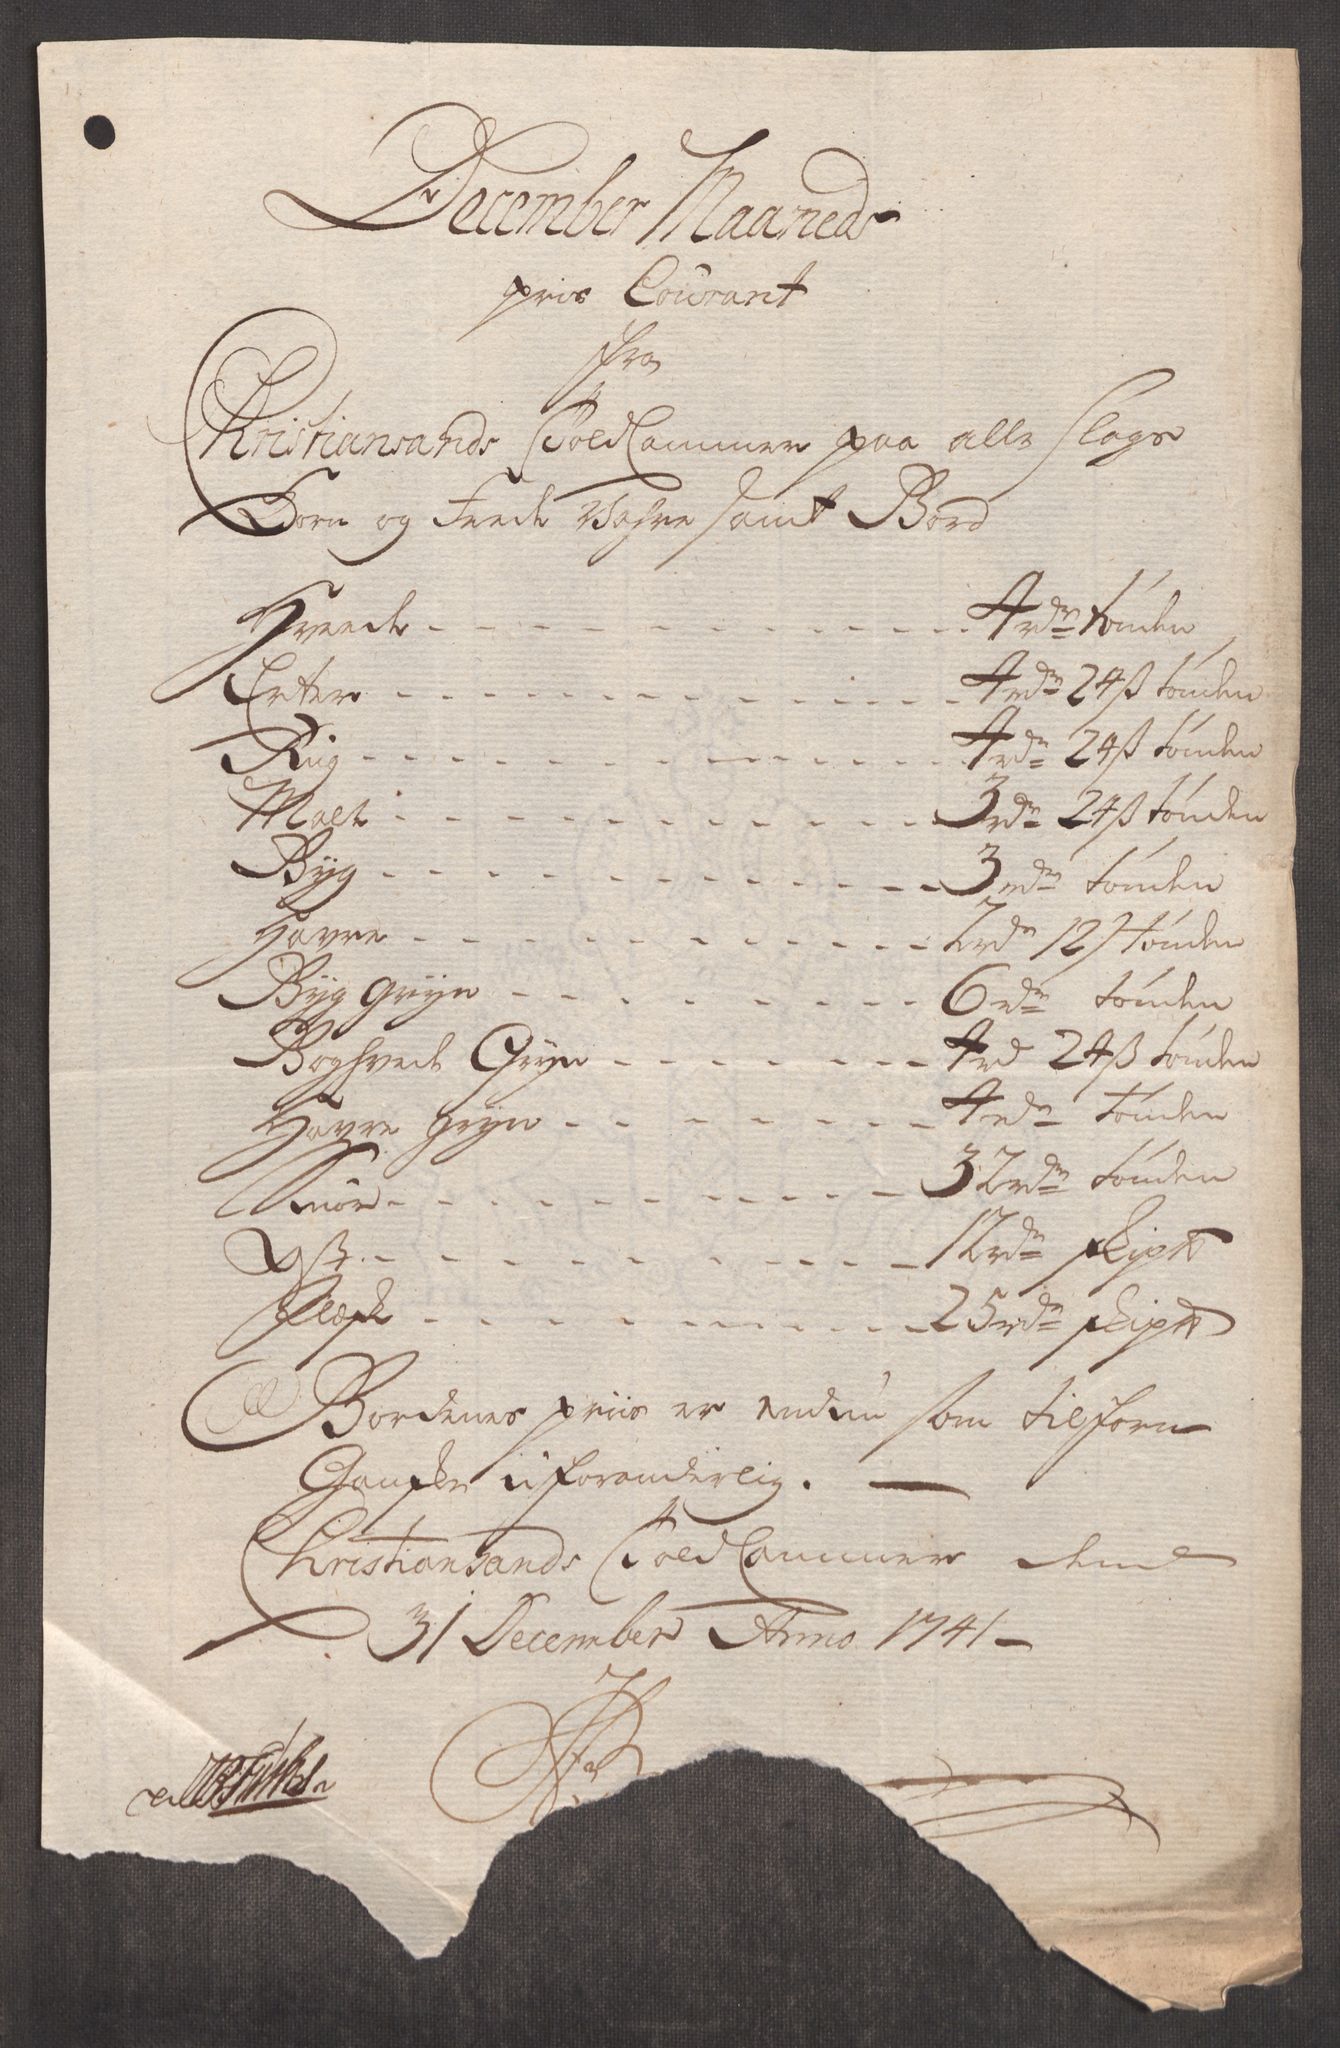 December Maaneds
priis Courant
fra
Christiansands Told Cammer paa alle Slags
Korn og Feede Vahre samt Bord
Hveede - - - 4 rdr tönden
Erter - - - 4 rdr 24 ß tönden
Rug - - - 4 rdr 24 ß tönden
Malt - - - 3 rdr 24 ß tönden
Byg - - - 3 rdr tönden
Havre - - - 2 rdr 12 ß tönden
Byg Gryn - - - 6 rdr tönden
Boghvede Gryn - - - 4 rd 24 ß tönden
Havre Gryn - - - 4 rdr tönden
Smör - - - 32 rdr tönden
Ost - - - 12 rdr skip℔
Flesk - - - 25 rdr skip℔
Bordenes priis er endnu som tilforn
Ganske uforanderlig. —
Christiansands Told Cammer dend
31 December Anno 1741 –